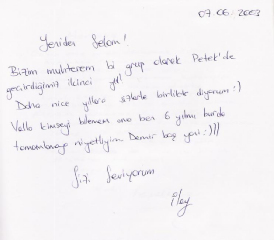 07.06.2003
Yeniden Selam!
Bizim muhterem bi grup olarak Petek'de
geçirdiğimiz ikinci yıl!
Daha nice yıllara sizlerle birlikte diyorum :)
Valla kimseyi bilemem ama ben 6 yılımı burda
tamamlamaya niyetliyim Demir baş yani :)))
Sizi Seviyorum